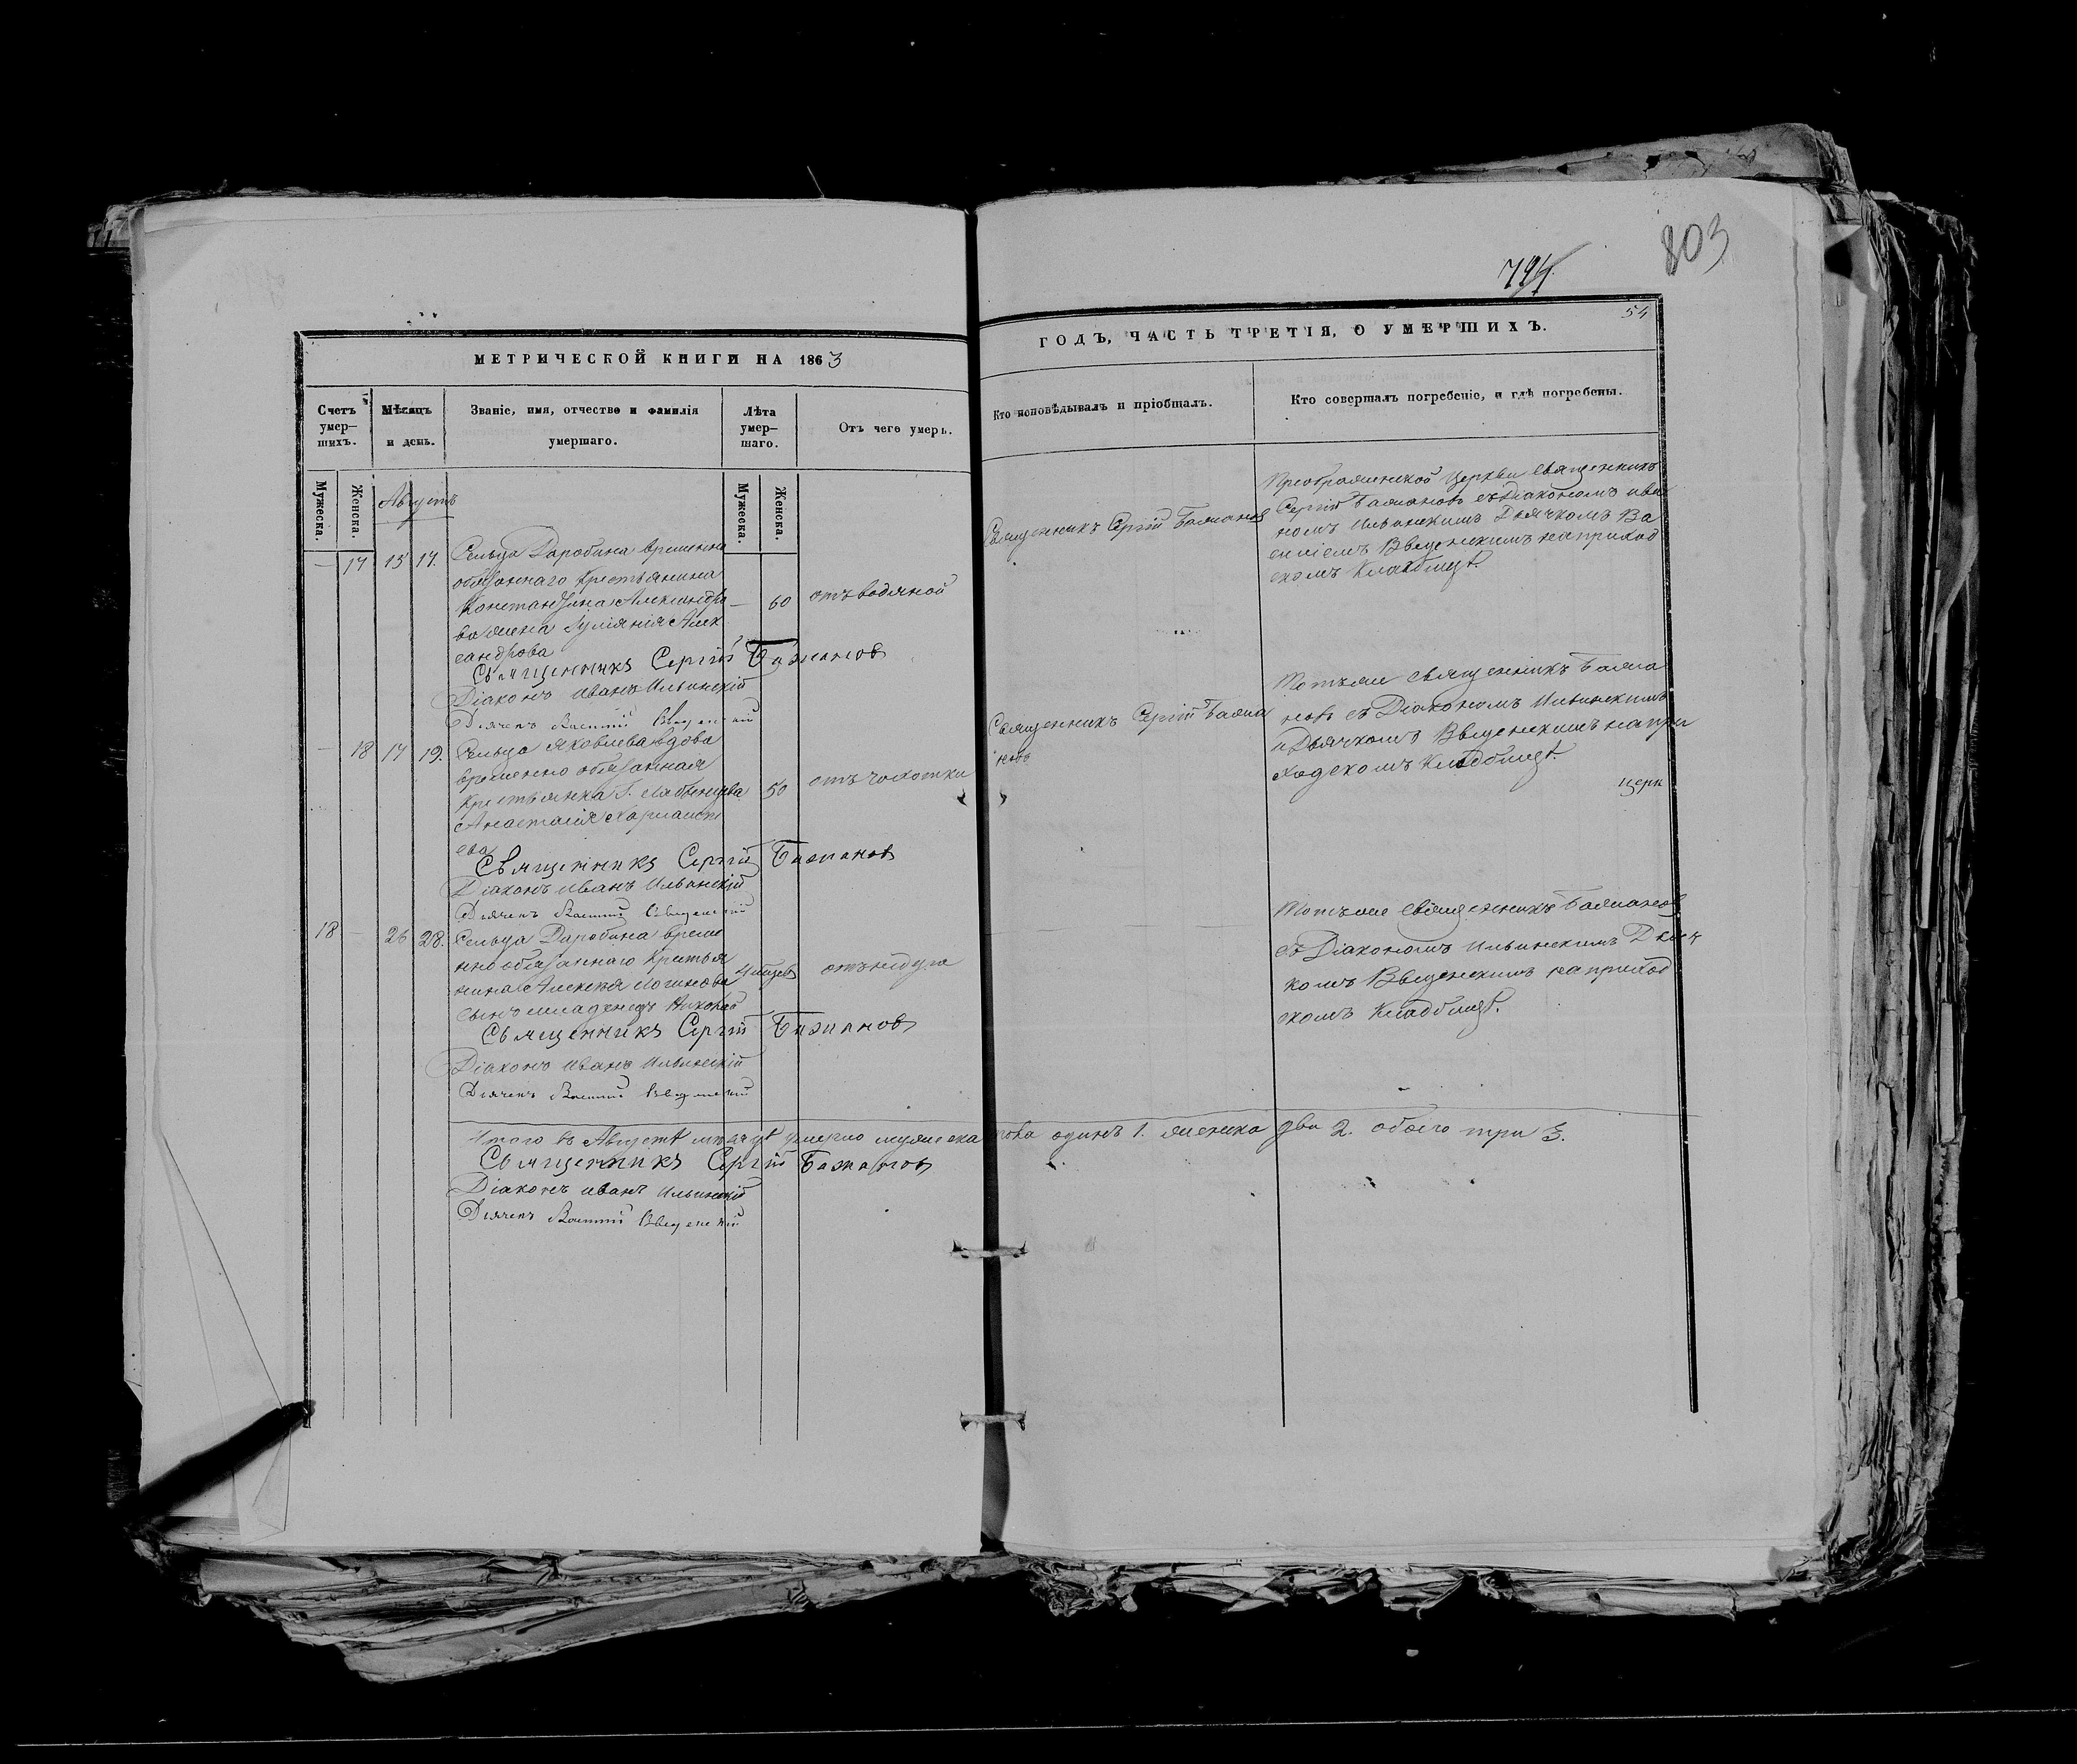 803
794.
54
МЕТРИЧЕСКОЙ КНИГИ НА 1863
ГОДЪ, ЧАСТЬ ТРЕТІЯ, О УМЕРШИХЪ.
Счетъ умер-шихъ.
Мѣсяцъ и день.
Званіе, имя, отчество и фамилія умершаго.
Лѣта умер-шаго.
Отъ чего умеръ.
Кто исповѣдывалъ и пріобщалъ.
Кто совершалъ погребеніе, и гдѣ погребены.
Мужеска.
Женска.
Мужеска.
Женска.
Августъ
— 17 15 17.
Сельца Даробина временно
обязаннаго Крестьянина
Константина Александро
ва жена Іуліянія Алек
сандрова
— 60
отъ водяной
Священникъ Сергій Бажановъ
Преображенской Церкви Священникъ
Сергій Бажановъ съ Діакономъ Ива
номъ Ильинскимъ Дьячкомъ Ва
силіемъ Введенскимъ на приход
скомъ Кладбищѣ.
Священникъ Сергій Бажановъ
Діаконъ Иванъ Ильинскій
Дьячекъ Василій Введенскій
— 18 17 19.
Сельца Яковлева вдова
временно обязанная
Крестьянка Г.
Анастасія
ева
50
отъ чахотки
Священникъ Сергій Бажа
новъ
Тотъ же Священникъ Бажа
новъ съ Діакономъ Ильинскимъ
и Дьячкомъ Введенскимъ на при
ходскомъ Кладбищѣ.
церк
Священникъ Сергій Бажановъ
Діаконъ Иванъ Ильинскій
Дьячекъ Василій Введенскій
18 — 26 28.
Сельца Даробина време
нно обязаннаго Крестья
нина Алексѣя Логинова
сынъ младенецъ Николай
4 мцевъ
отъ недуга
Тотъ же Священникъ Бажановъ
съ Діакономъ Ильинскимъ Дьяч
комъ Введенскимъ на приход
скомъ Кладбищѣ.
Священникъ Сергій Бажановъ
Діаконъ Иванъ Ильинскій
Дьячекъ Василій Введенскій
Итого въ Августѣ мѣсяцѣ умерло мужеска пола одинъ 1. женска два 2. обоего три 3.
Священникъ Сергій Бажановъ
Діаконъ Иванъ Ильинскій
Дьячекъ Василій Введенскій